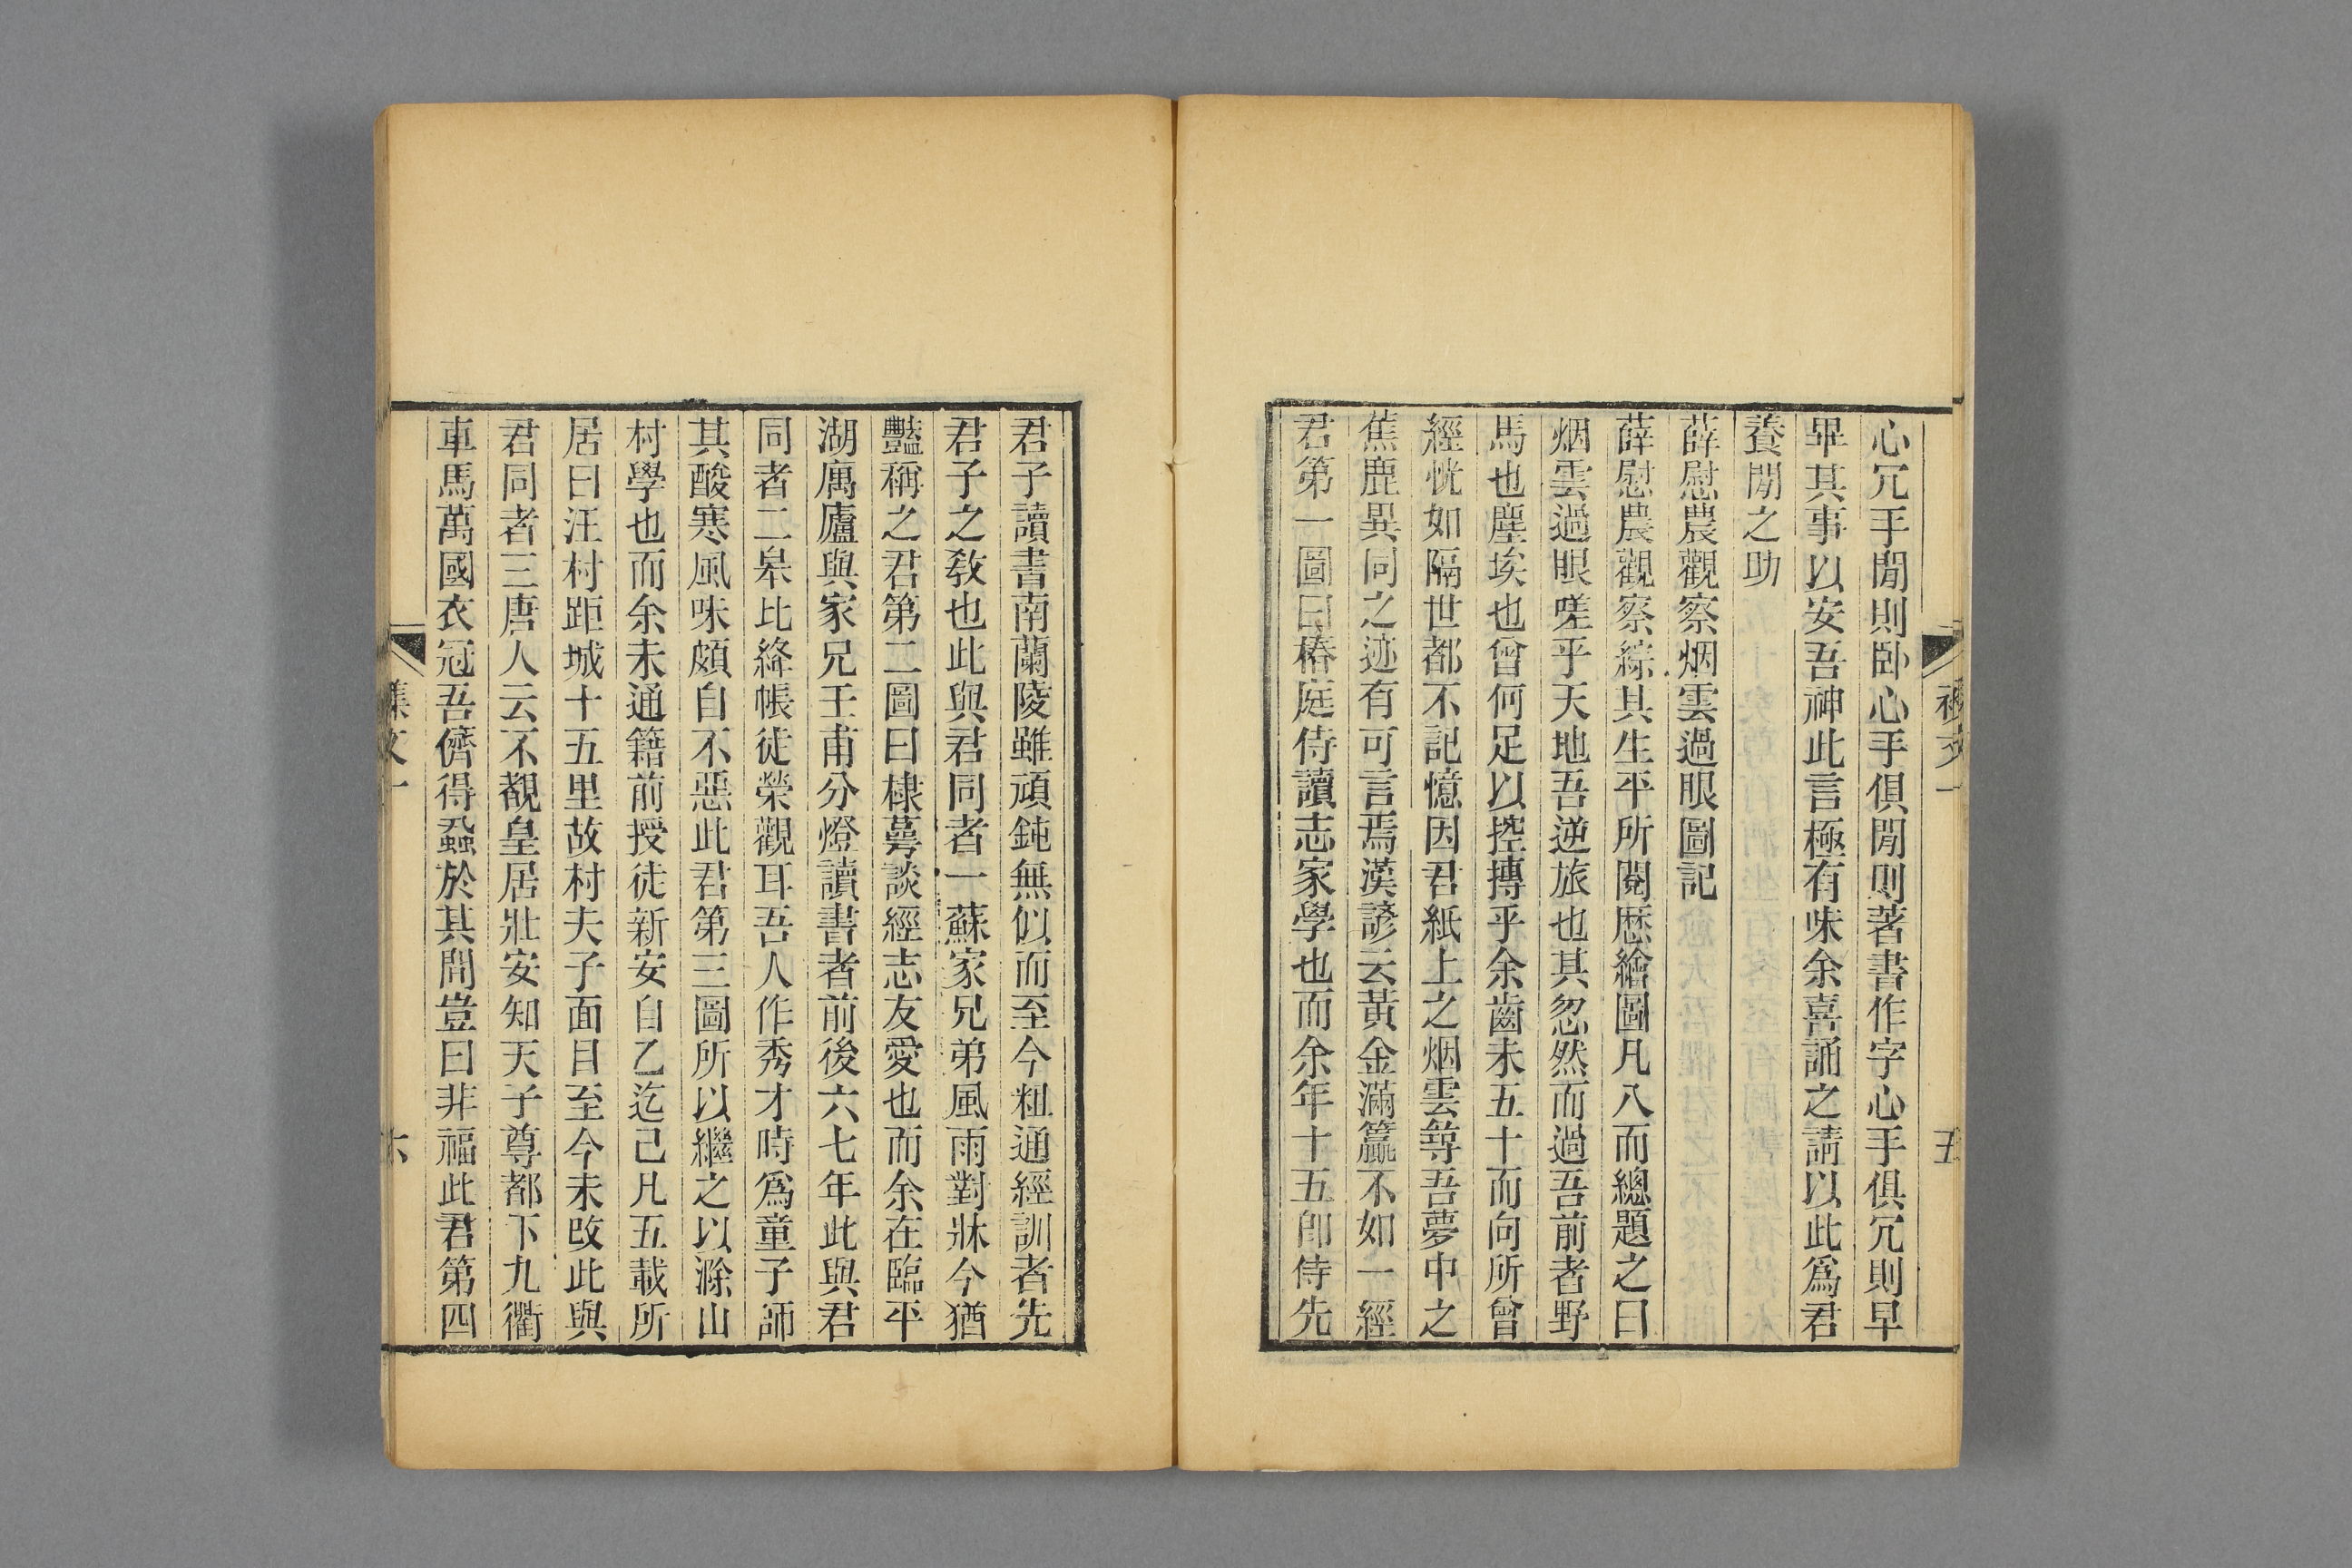 心冗手閒則卧心手俱閒則著書作字心手俱冗則早
畢其事以安吾神此言極有味余喜誦之請以此爲君
養閒之助
薛慰農觀察烟雲過眼圖記
薛慰農觀察綜其生平所閱歷繪圖凡八而總題之曰
烟雲過眼嗟乎天地吾逆旅也其忽然而過吾前者野
馬也塵埃也曾何足以控摶乎余齒未五十而向所曾
經恍如隔世都不記憶因君紙上之烟雲尋吾夢中之
蕉鹿異同之迹有可言焉漢諺云黃金滿籯不如一經
君第一圖曰椿庭侍讀志家學也而余年十五卽侍先
君子讀書南蘭陵雖頑鈍無似而至今粗通經訓者先
君子之敎也此與君同者一蘇家兄弟風雨對牀今猶
豔稱之君第二圖曰棣萼談經志友愛也而余在臨平
湖厲廬與家兄壬甫分燈讀書者前後六七年此與君
同者二臯比絳帳徒榮觀耳吾人作秀才時爲童子師
其酸寒風味頗自不惡此君第三圖所以繼之以滁山
村學也而余未通籍前授徒新安自乙迄己凡五載所
居曰汪村距城十五里故村夫子面目至今未改此與
君同者三唐人云不覩皇居壯安知天子尊都下九衢
車馬萬國衣冠吾儕得蝨於其間豈曰非福此君第四